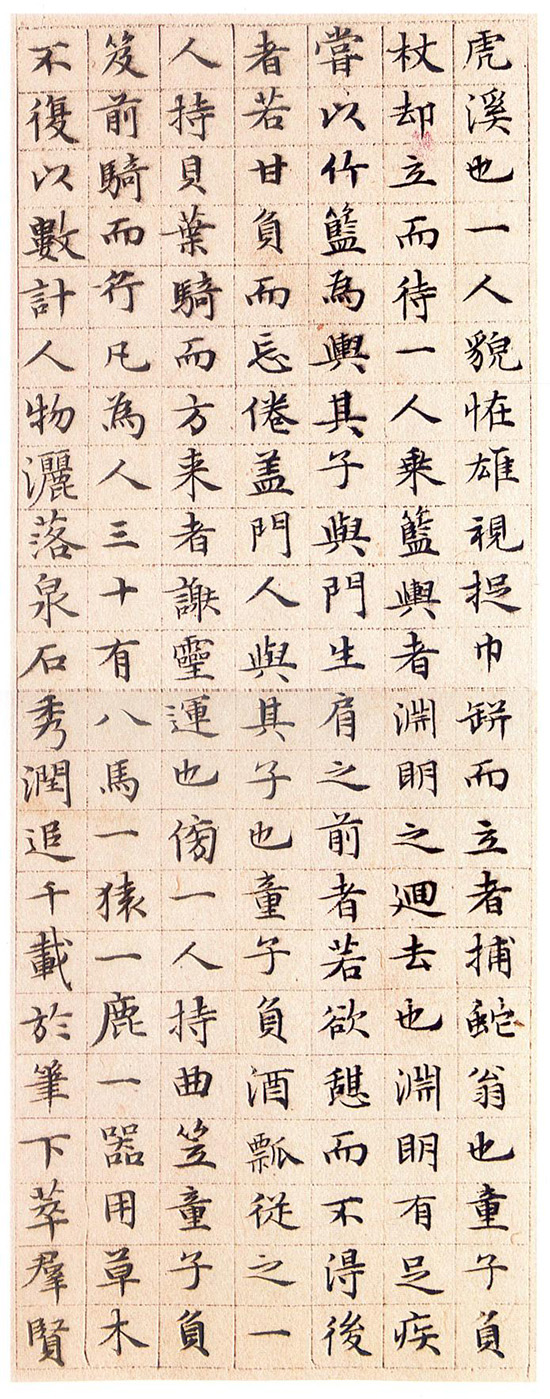 虎溪也一人貌恠雄視捉巾缾而立者捕蛇翁也童子負
杖却立而待一人乘籃輿者淵明之廻去也淵明有足疾
嘗以竹籃為輿其子與門生肩之前者若欲憇而不得後
者若甘負而忘倦盖門人與其子也童子負酒瓢従之一
人持貝葉騎而方来者謝靈運也傍一人持曲笠童子負
笈前騎而行凡為人三十有八馬一猿一鹿一器用草木
不復以數計人物灑落泉石秀潤追千載於筆下萃羣賢